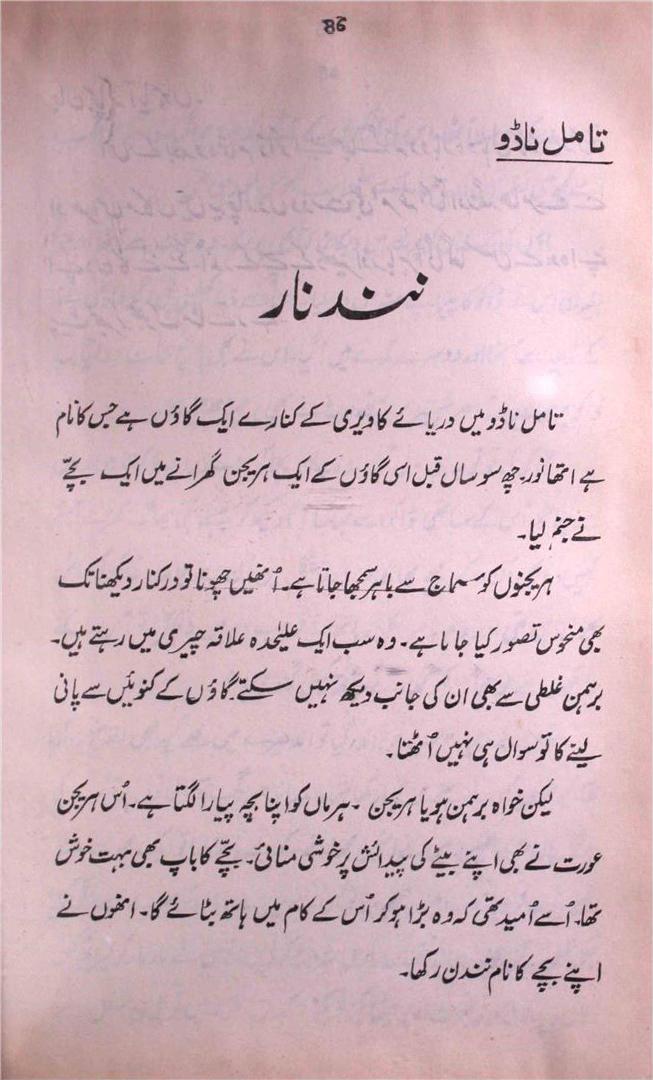 46
تامل ناڈو
نندنار
تامل ناڈو میں دریائے کاویری کے کنارے ایک گاؤں ہے جس کا نام
ہے اتھانور۔ چھ سو سال قبل اسی گاؤں کے ایک ہریجن گھرانے میں ایک بچّے
نے جنم لیا۔
ہریجنوں کو سماج سے باہر سمجھا جاتا ہے۔ اُنھیں چھونا تو درکنار دیکھنا تک
بھی منحوس تصور کیا جاتا ہے۔ وہ سب ایک علیٰحدہ علاقہ چیری میں رہتے ہیں۔
برہمن غلطی سے بھی ان کی جانب دیکھ نہیں سکتے۔ گاؤں کے کنوئیں سے پانی
لینے کا تو سوال ہی نہیں اُٹھتا۔
لیکن خواہ برہمن ہو یا ہریجن ۔ ہر ماں کو اپنا بچہ پیارا لگتا ہے۔ اُس ہریجن
عورت نے بھی اپنے بیٹے کی پیدائش پر خوشی منائی۔ بچّے کا باپ بھی بہت خوش
تھا۔ اُسے اُمید تھی کہ وہ بڑا ہو کر اُس کے کام میں ہاتھ بٹائے گا۔ انھوں نے
اپنے بچے کا نام نندن رکھا۔